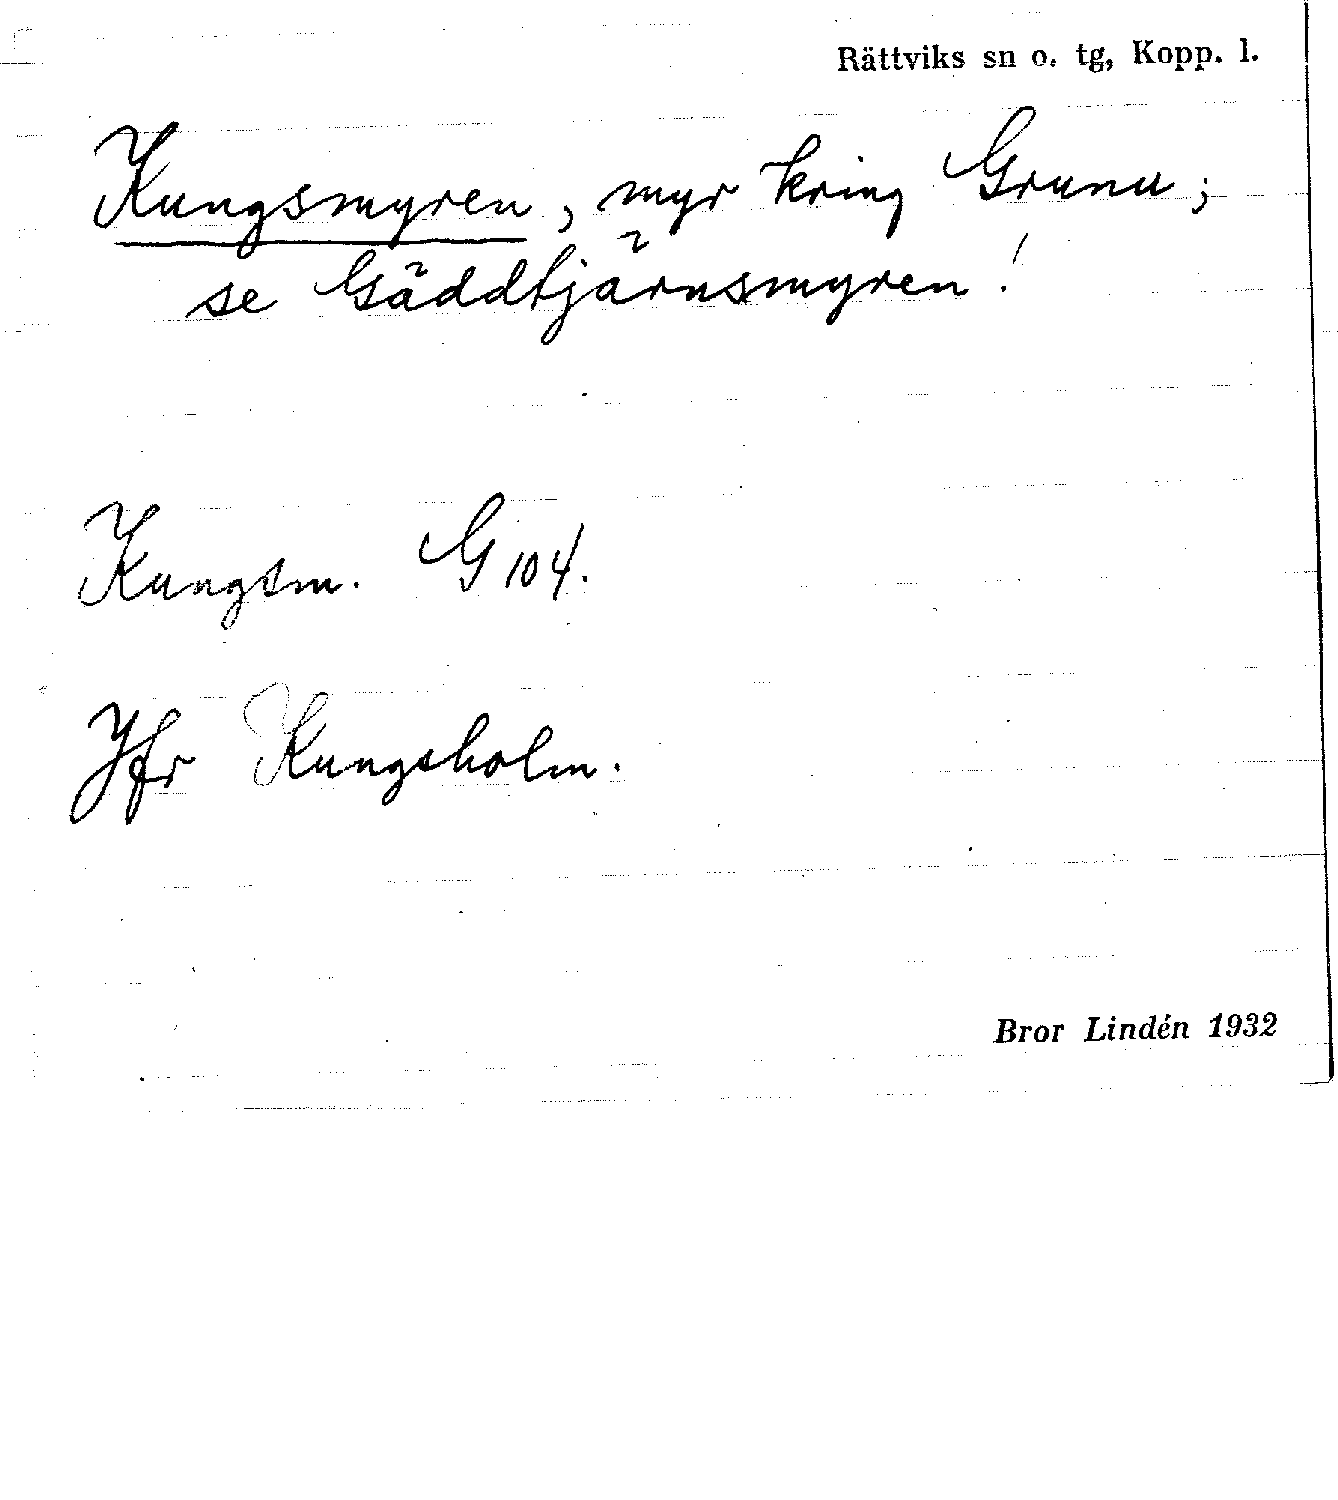 Rättviks sn o. tg, Kopp. l.
Kungsmyren, myr kring Grunu;
se Gäddtjärnsmyren!
Kungsm. G 104.
Jfr Kungsholm.
Bror Lindén 1932